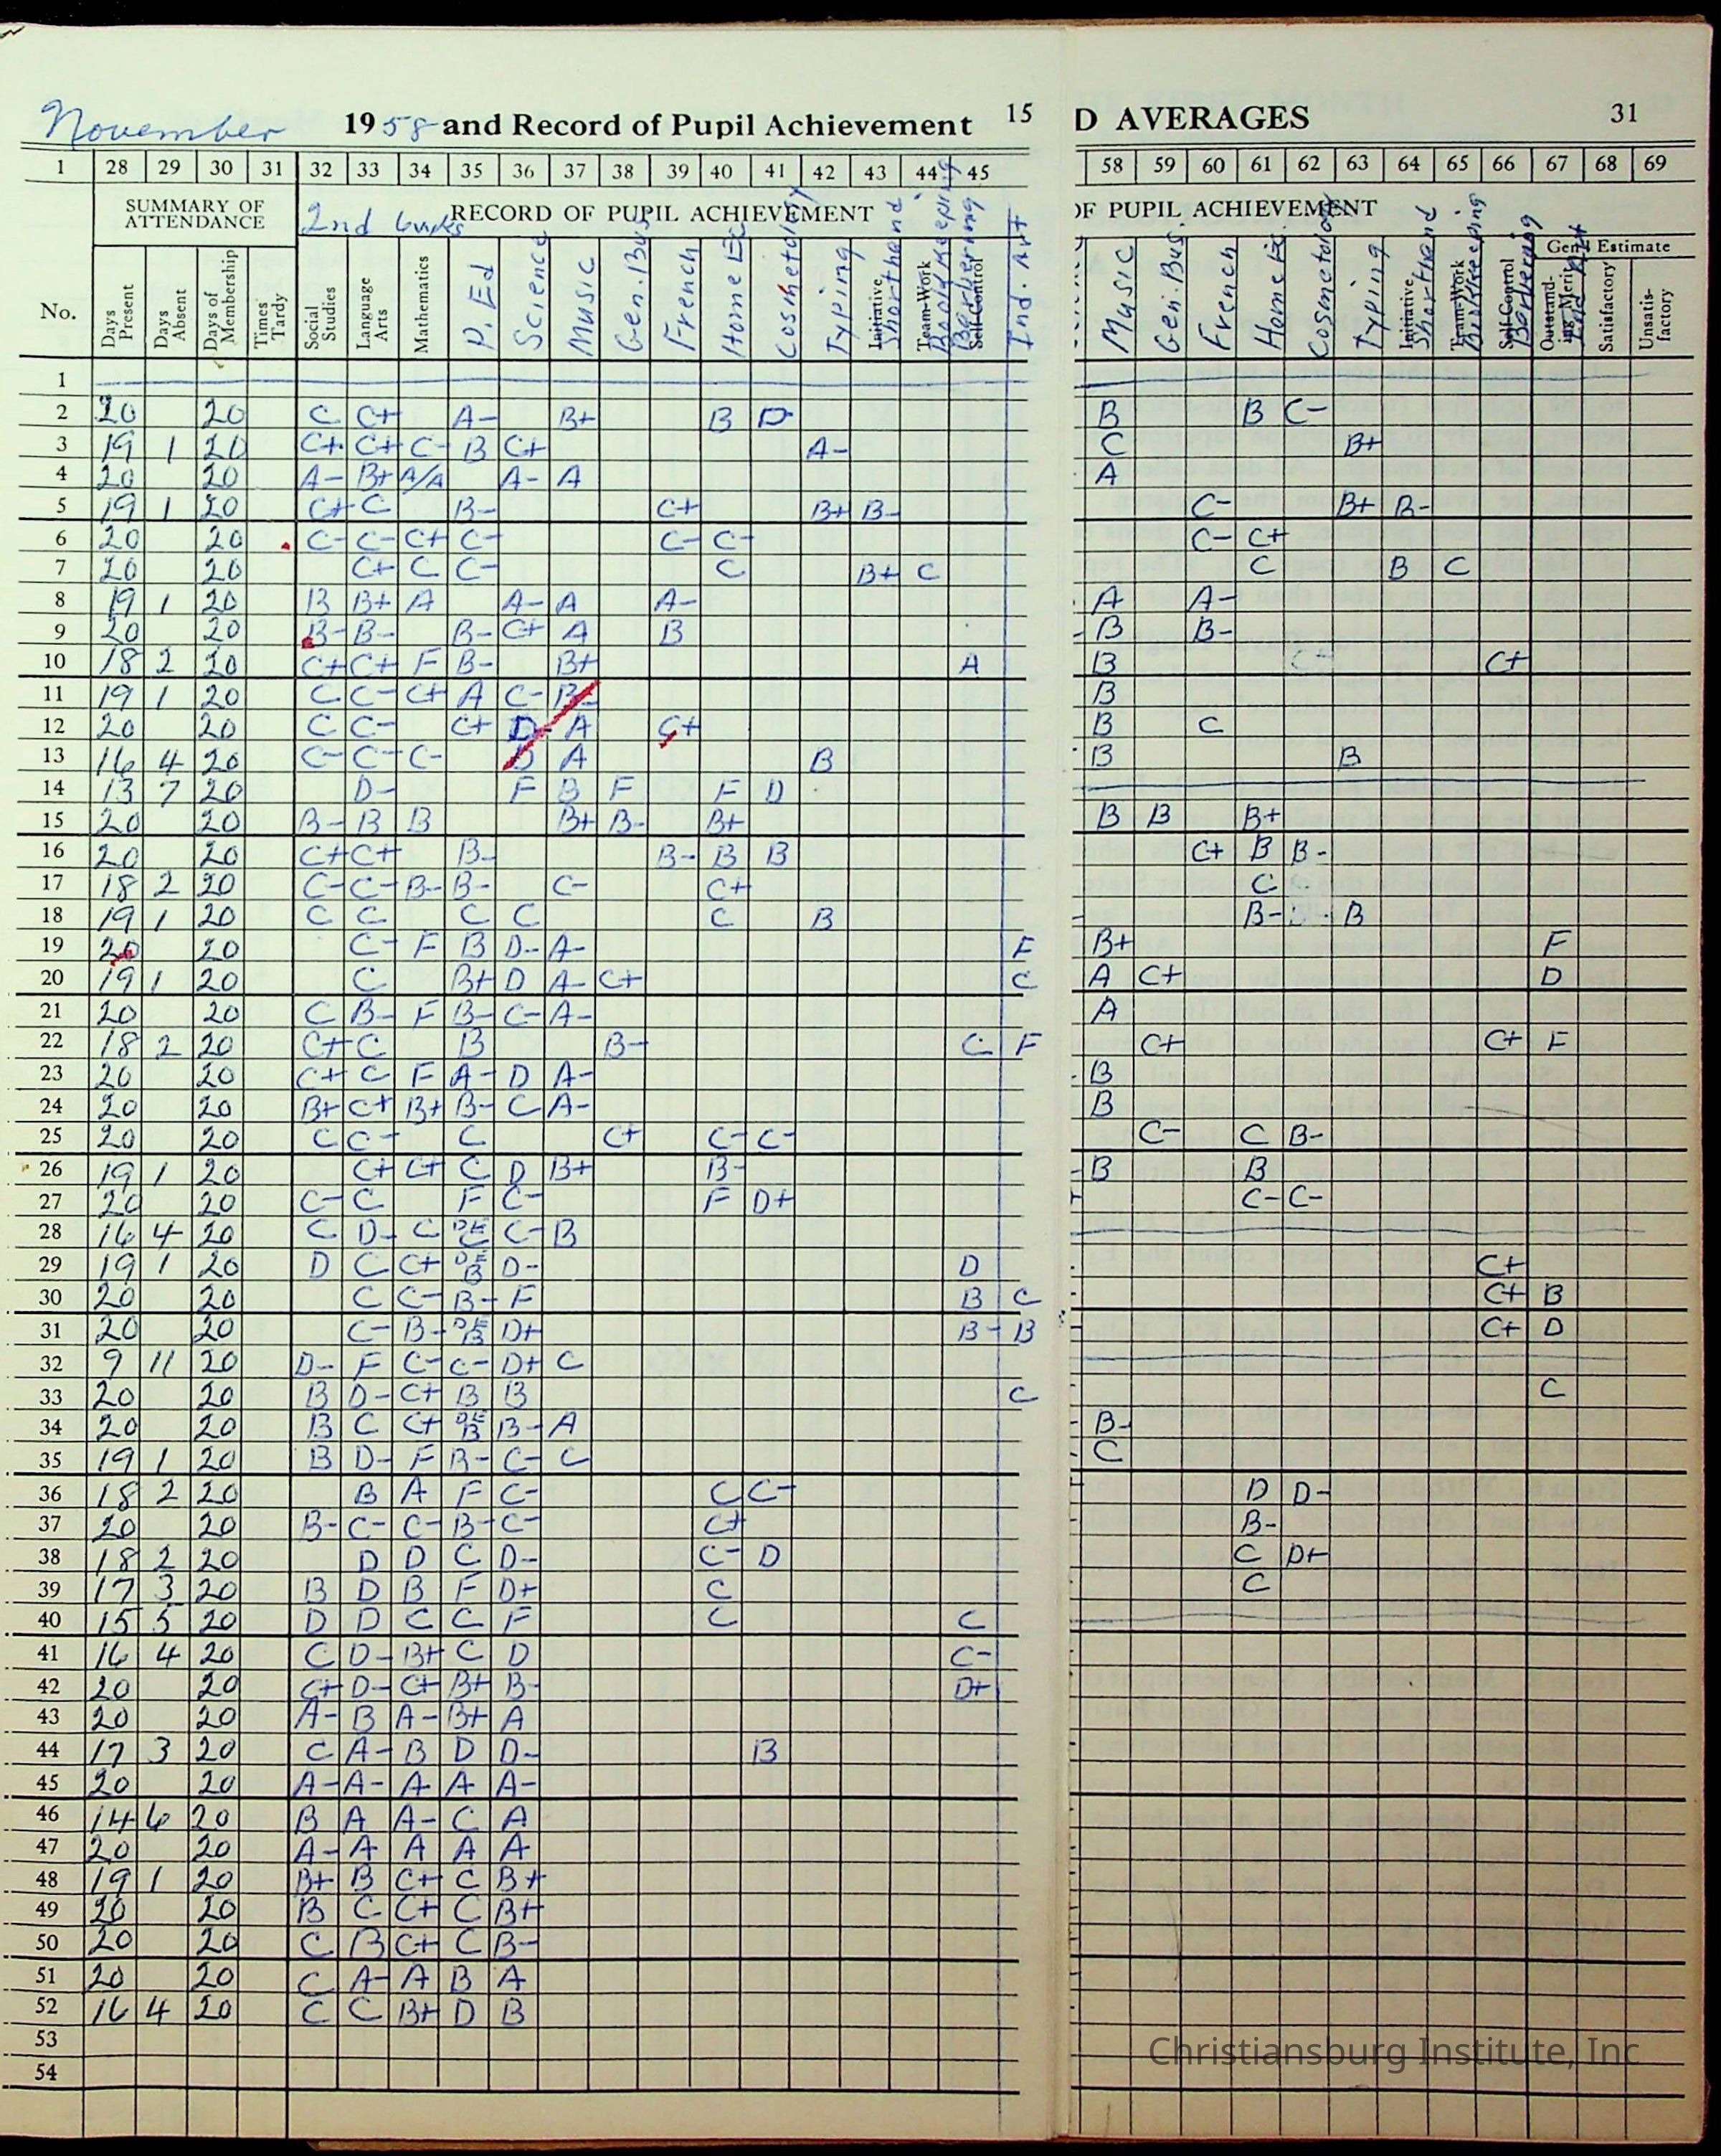 November 1958 and Record of Pupil Achievement 15
D AVERAGES 31
1 28 29 30 31 32 33 34 35 36 37 38 39 40 41 42 43 44 45
58 59 60 61 62 63 64 65 66 67 68 69
SUMMARY OF ATTENDANCE
2nd 6 wks RECORD OF PUPIL ACHIEVEMENT
OF PUPIL ACHIEVEMENT
Gen'l Estimate
No. Days Present Days Absent Days of Membership Times Tardy Social Studies Language Arts Mathematics P. Ed Science Music Gen. Bus. French Home Ec. Cosmetology Typing Initiative Shorthand Team-Work Bookkeeping Self-Control Barbering Ind. Art
Music Gen. Bus. French Home Ec. Cosmetology Typing Initiative Shorthand Team-Work Bookkeeping Self-Control Barbering Outstanding Merit Ind. Art Satisfactory Unsatisfactory
1
2 20 20 C C+ A- B+ B D B B C-
3 19 1 20 C+ C+ C- B C+ A- C B+
4 20 20 A- B+ A/A A- A A
5 19 1 20 C+ C B- C+ B+ B- C- B+ B-
6 20 20 C- C- C+ C- C- C- C- C+
7 20 20 C+ C C- C B+ C C B C
8 19 1 20 B B+ A A- A A- A A-
9 20 20 B- B- B- C+ A B B B-
10 18 2 20 C+ C+ F B- B+ A B C+
11 19 1 20 C C- C+ A C- B- B
12 20 20 C C- C+ D- A C+ B C
13 16 4 20 C- C- C- D A B B B
14 13 7 20 D- F B F F D
15 20 20 B- B B B+ B- B+ B B B+
16 20 20 C+ C+ B- B- B B C+ B B-
17 18 2 20 C- C- B- B- C- C+ C
18 19 1 20 C C C C C B B- B
19 20 20 C- F B D- A- F B+ F
20 19 1 20 C B+ D A- C+ C A C+ D
21 20 20 C B- F B- C- A- A
22 18 2 20 C+ C B B- C F C+ C+ F
23 20 20 C+ C F A- D A- B
24 20 20 B+ C+ B+ B- C A- B
25 20 20 C C- C C+ C- C- C- C B-
26 19 1 20 C+ C+ C D B+ B- B B
27 20 20 C- C F C- F D+ C- C-
28 16 4 20 C D- C DE C C- B
29 19 1 20 D C C+ DE B D- D C+
30 20 20 C C- B- F B C C+ B
31 20 20 C- B- DE B D+ B- B C+ D
32 9 11 20 D- F C- C- D+ C
33 20 20 B D- C+ B B C C
34 20 20 B C C+ DE B B- A B-
35 19 1 20 B D- F B- C- C C
36 18 2 20 B A F C- C C- D D-
37 20 20 B- C- C- B- C- C+ B-
38 18 2 20 D D C D- C- D C D+
39 17 3 20 B D B F D+ C C
40 15 5 20 D D C C F C C
41 16 4 20 C D- B+ C D C-
42 20 20 C+ D- C+ B+ B- D+
43 20 20 A- B A- B+ A
44 17 3 20 C A- B D D- B
45 20 20 A- A- A A A-
46 14 6 20 B A A- C A
47 20 20 A- A A A A
48 19 1 20 B+ B C+ C B+
49 20 20 B C C+ C B+
50 20 20 C B C+ C B-
51 20 20 C A- A B A
52 16 4 20 C C B+ D B
53
54
Christiansburg Institute, Inc